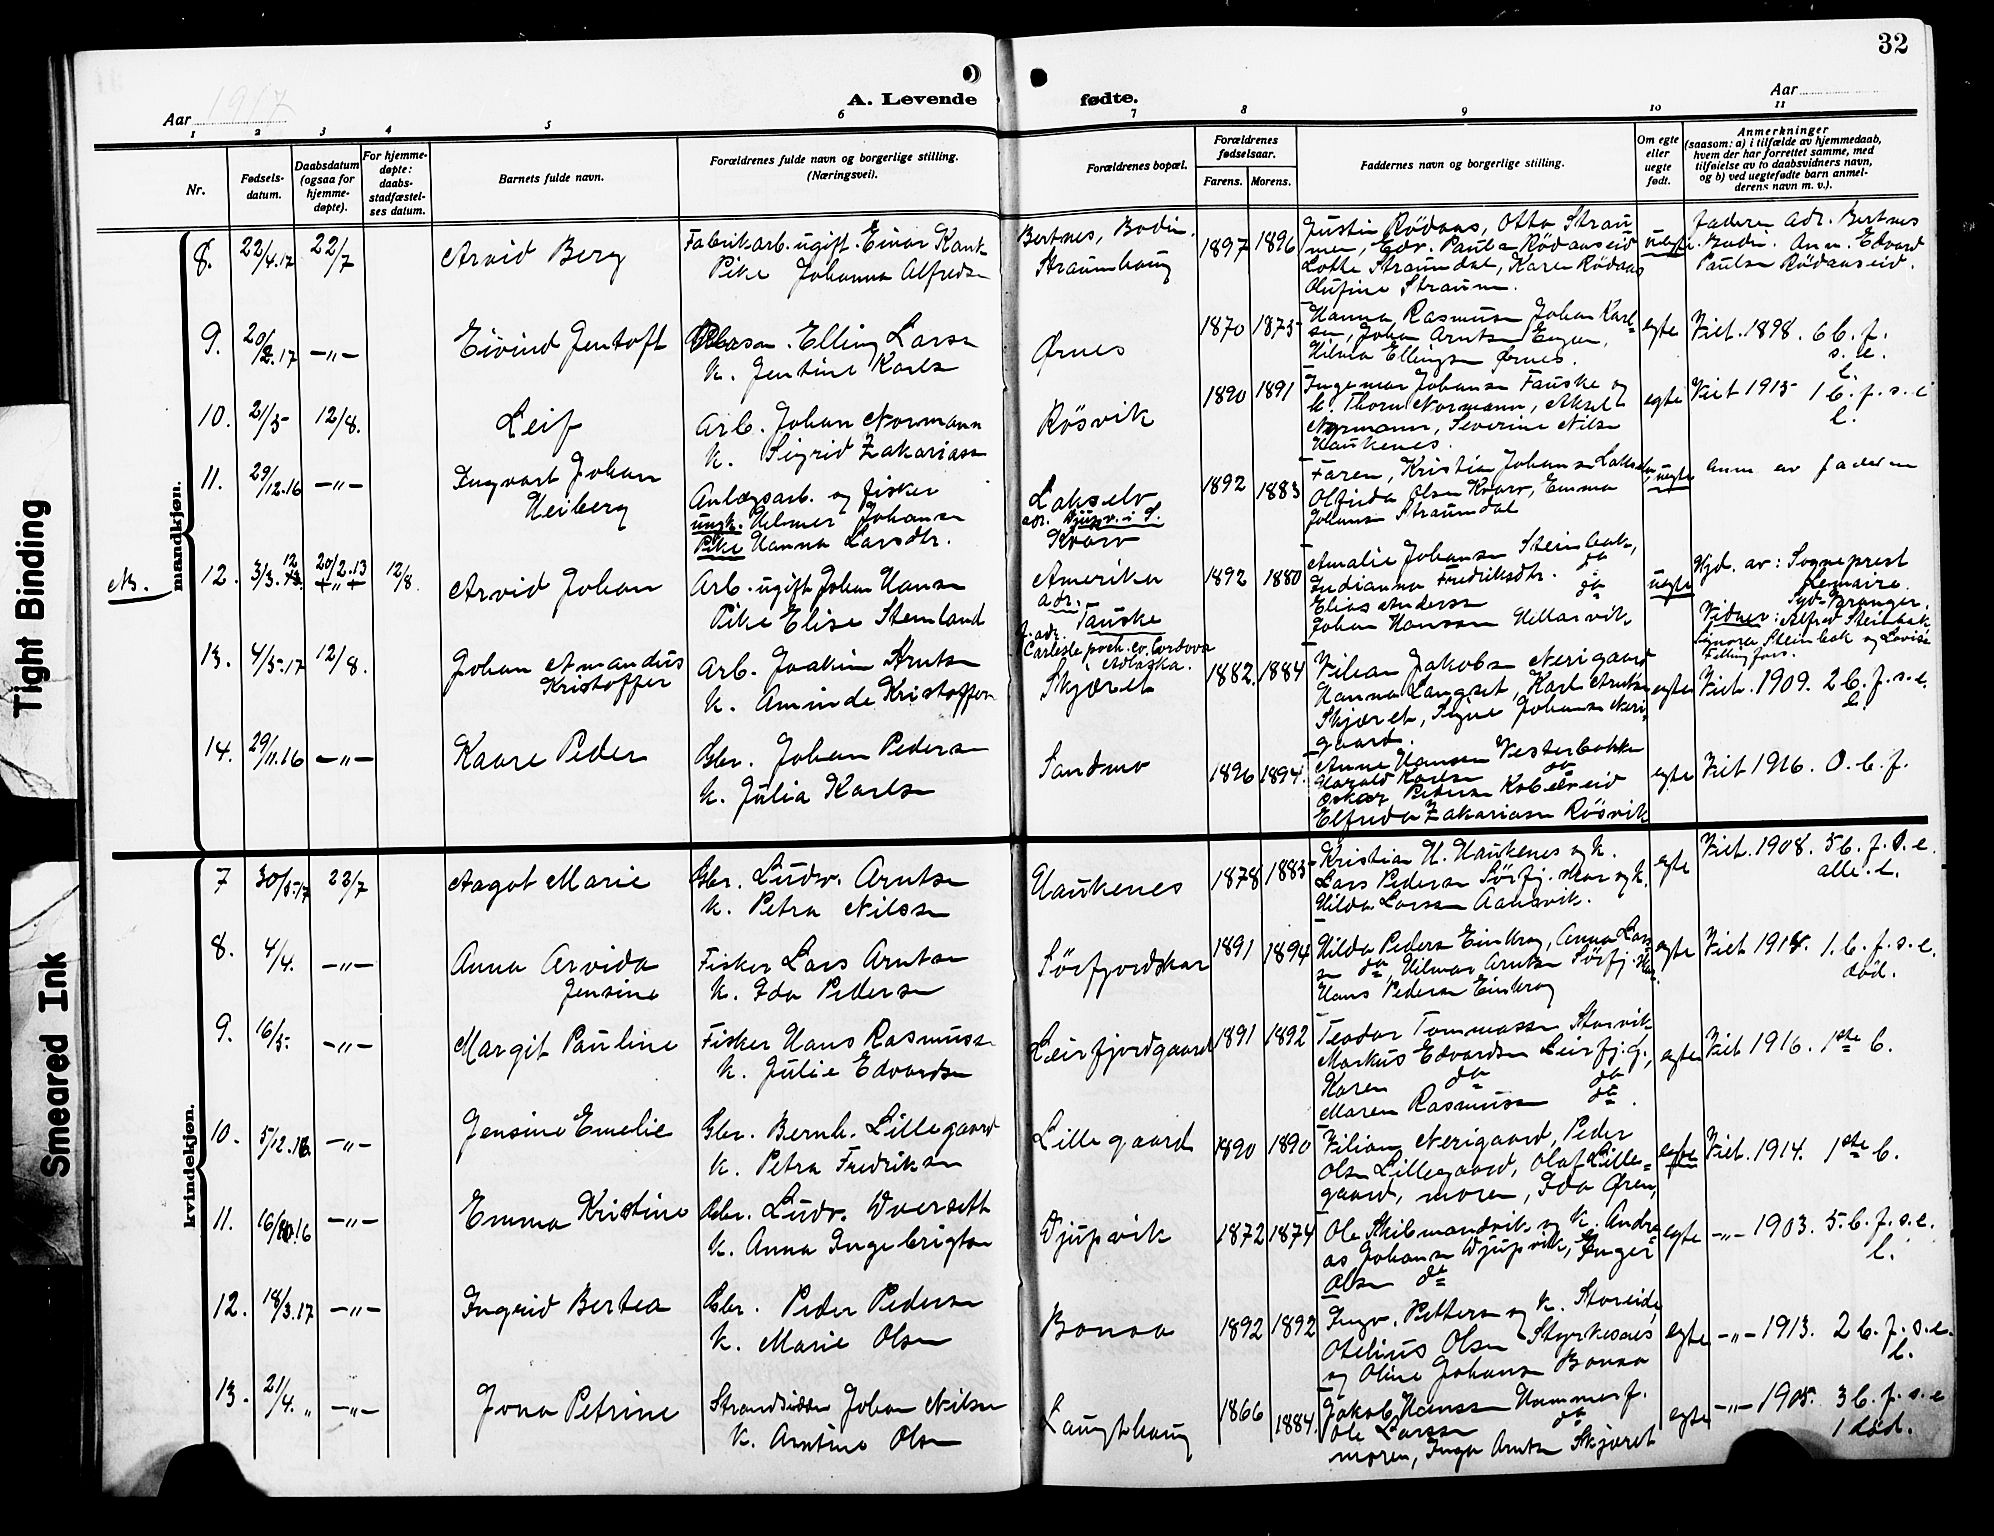 32
Aar 1917
A. Levende
fødte.
Aar
1
2
3
4
5
6
7
8
9
10
11
Nr.
Fødsels-
datum.
Daabsdatum
(ogsaa for
hjemme-
døpte).
For hjemme-
døpte:
daabs-
stadfæstel-
ses datum.
Barnets fulde navn.
Forældrenes fulde navn og borgerlige stilling.
(Næringsvei).
Forældrenes bopæl.
Forældrenes
fødselsaar.
Farens.
Morens.
Faddernes navn og borgerlige stilling.
Om egte
eller
uegte
født.
Anmerkninger
(saasom: a) i tilfælde av hjemmedaab,
hvem der har forrettet samme, med
tilføielse av to daabsvidners navn,
og b) ved uegtefødte barn anmel-
derens navn m. v.).
mandkjøn.
8. 22/4.17 22/7 Arvid Berg
Fabrikarb. ugift. Einar Kank
Pike Johanna Alfredsn
Bertnes, Bodin.
Straumhaug
1897 1896
Justin Rödaas, Otto Strau
men, Edv. Paulsn Rödaaseid
Lotte Straumdal, Karen Rödaas
Olufine Straum.
uegte
faderen adr. Bertnes
Bodin. Anm. Edvard
Paulsn Rödaaseid.
9. 20/2.17 -"- Eivind Jentoft
Elling Larsn
K. Jentine Karlsn
Ørnes
1870 1875
Hanna Rasmusn Johan Karl=
sn, Johan Arntsn Engan,
Hilma Ellingsn Ørnes.
egte
Viet. 1898. 6 b. f.
s. e.
l.
10. 21/5 12/8. Leif
Arb. Johan Normann
K. Sigrid Zakariasn
Rösvik
1890 1891
Ingemar Johansn Fauske og
K. Thora Normann, Aksel
Normann, Severine Nilsn
Haukenes.
egte
Viet 1915 1 b. f. s. e
l.
11. 29/12.16 -"- Ingvart Johan
Heiberg
Anlægsarb. og fisker
ungk. Helmer Johansn
Pike Hanna Larsdtr.
Lakselv
adr. Djupv. i S.
Kvarv
1892 1883
Faren, Kristian Johansn Lakselv,
Olfrida Olsen Kvarv, Emma
Johansn Straumdal
uegte
Anm av faderen
NB.
12. 3/3. 12 20/2.13 12/8. Arvid Johan
Arb. ugift Johan Hansn
Pike Elise Stemland
Amerika
adr.
Fauske
f. adr.
Carlesle poch. co. Cordova
Adlaska.
1892 1880
Amalie Johansn Steinbak,
Indianna Fredriksdtr. do
Elias Andersn do
Johan Hanssn Hillarvik
uegte
Hjd. av: Sogneprest
Lemaire
Syd-Varanger.
Vidner: Alfred Steinbak
Signora Steinbak og Lovise
13. 4/5.17 12/8. Johan Amandus
Kristoffer
Arb. Joakim Arntsn
K. Aminde Kristoffersn
Skjæret
1882. 1884
Vilian Jakobsn Nerigaard
Hanna Langset, Karl Arntsn
Skjæret, Signe Johansn Neri
gaard.
egte
Viet. 1909. 2 b. f. s. e.
l.
14. 29/11.16 -"- Kaare Peder
Gbr. Johan Pedersn
K. Julia Karlsn
Sandmo
1896 1894.
Anne Hansen Vesterbakke
Harald Karlsn do
Oskar Pedersn Kobberseid
Elfrida Zakariasn Rösvik
egte
Viet 1916. 0. b. f.
kvindekjøn.
7 30/5.17 22/7 Aagot Marie
Gbr. Ludv. Arntsn
K. Petra Nilssn
Haukenes
1878 1883
Kristian H. Haukenes og K.
Lars Pedersn Sörfj. skar og K.
Hilda Larssn Aansvik.
egte
Viet. 1908. 5 b. f. s. e.
alle. l.
8. 4/4. -"- Anna Arvida
Jensine
Fisker Lars Arntsn
K. Ida Pedersn
Sörfjordskar
1891 1894
Hilda Pedersn Einkrog, Anna Lars
sn do, Hilmar Arntsn Sörfj. skar
Hans Pedersn Einkrog
egte
Viet 1914. 1. b. f. s. e.
död.
9. 16/5. -"- Margit Pauline
Fisker Hans Rasmussn
K. Julie Edvardsn
Leirfjordgaard
1891 1892
Teodor Tommassn Storvik
Markus Edvardsn Leirfj. g.,
Karen do do
Maren Rasmussn do.
egte
Viet 1916. 1ste b.
10. 5/12.16 -"- Jensine Emelie
Gbr. Bernh. Lillegaard
K. Petra Fredriksn
Lillegaard
1890 1890
Vilian Nerigaard, Peder
Olsn Lillegaard, Olaf Lille=
gaard, moren, Ida Øren,
egte
Viet. 1914. 1ste b.
11. 16/10.16 -"- Emma Kristine
Gbr. Ludv. Dversett
K. Anna Ingebrigtsn
Djupvik
1872 1874
Ole Skilmandvik og K. Andre
as Johansn Djupvik, Inger
Olsn do
egte
-"- 1903. 5. b. f. s. e.
l.
12. 18/3.17 -"- Ingrid Bertea
Gbr. Peder Pedersn
K. Marie Olsn
Bonaa
1892 1892
Ingv. Pettersn og K. Storeide,
Otelius Olsn Styrkesnes
og Oline Johansn Bonaa
egte
-"- 1913. 2 b. f. s. e.
l.
13. 21/4. " -"- Jona Petrine
Strandsidder Johan Nilsn
K. Arntine Olsn
Laugthaug
1866 1884.
Jakob Hanssn Hammerf.
Ole Larssn do
moren, Inga Arntsn Skjæret
egte
-"- 1905. 3 b. f. s. e
1 död.
Tight Binding
Smeared Ink